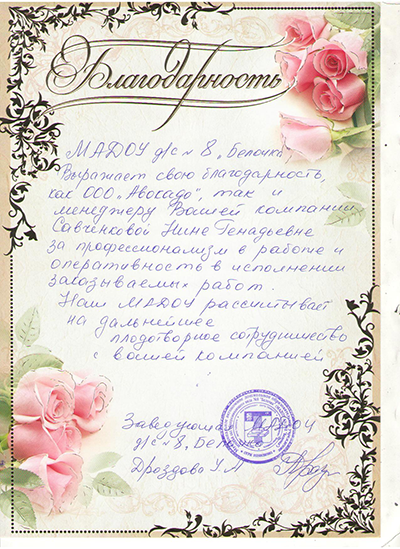 Благодарность
МАДОУ д/с № 8 „Белочка"
Выражает свою благодарность,
как ООО „Авокадо", так и
менеджеру Вашей компании
Савченковой Нине Генадьевне
за профессионализм в работе и
оперативность в исполнении
заказываемых работ.
Наш МАДОУ рассчитывает
на дальнейшее
плодотворное сотрудничество
с вашей компанией
Заведующая МАДОУ
д/с № 8 „Белочка
Дроздова У.А